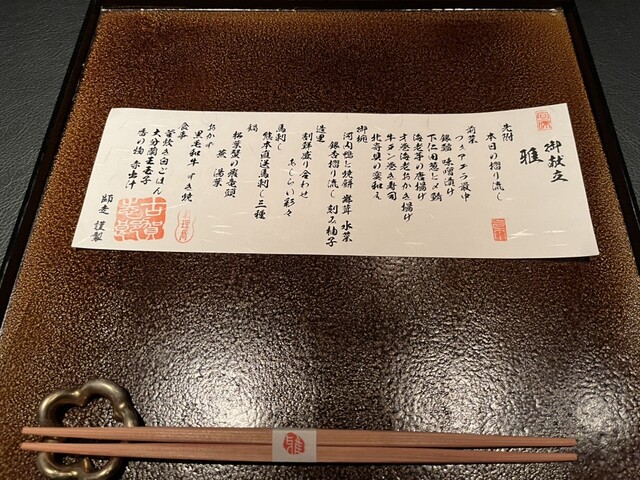 御献立
雅
先附
本日の摺り流し
前菜
フォアグラ最中
銀鱈 味噌漬け
下仁田葱とメ鯖
海老芋の唐揚げ
才巻海老おかき揚げ
牛タン巻き寿司
北寄貝の
御椀
河内鴨と焼餅 舞茸 水菜
銀杏摺り流し 刻み柚子
造里
割鮮盛り合わせ
あしらい彩々
馬刺し
熊本直送馬刺し三種
鍋
松葉蟹の飛竜頭
蕪 湯葉
おかず
黒毛和牛 すき焼
食事
釜炊き白ごはん
大分蘭王玉子
香の物 赤出汁
師走 謹製
雅